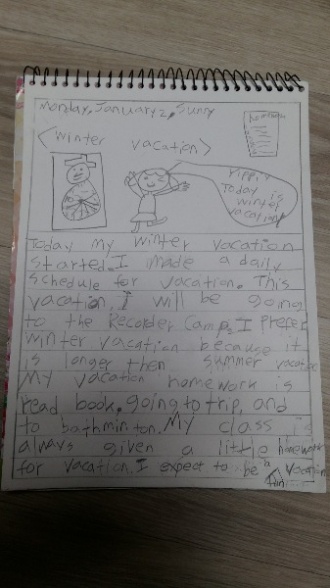 Monday, January 2, Sunny
<Winter vacation>
Yippi~
Today is
winter
vacation!
Today my winter vacation
started. I made a daily
schedule for vacation. This
vacation, I will be going
to the Recorder Camp. I Prefer
winter vacation because it
is longer then summer vacation
My vacation homework is
read book, going to trip, and
to bathminton. My class is
always given a little homework
for vacation. I expect to be a fun vacation